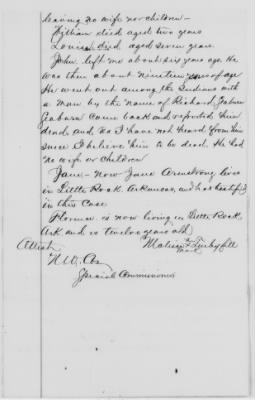 leaving no wife nor children -
Lillian died aged two years
Louisa died aged seven years
John left me about six years ago. He
was then about nineteen years of age
He went out among the Indians with
a man by the name of Richard
came back and reported him
dead, and as I have not heard from him
since I believe him to be dead. He had
no wife or children
Jane - now Jane Armstrong lives
in Little Rock Arkansas, and has testified
in this case
Florence is now living in Little Rock
Ark and is twelve years old
Attest
her
mark
Special Commissioner